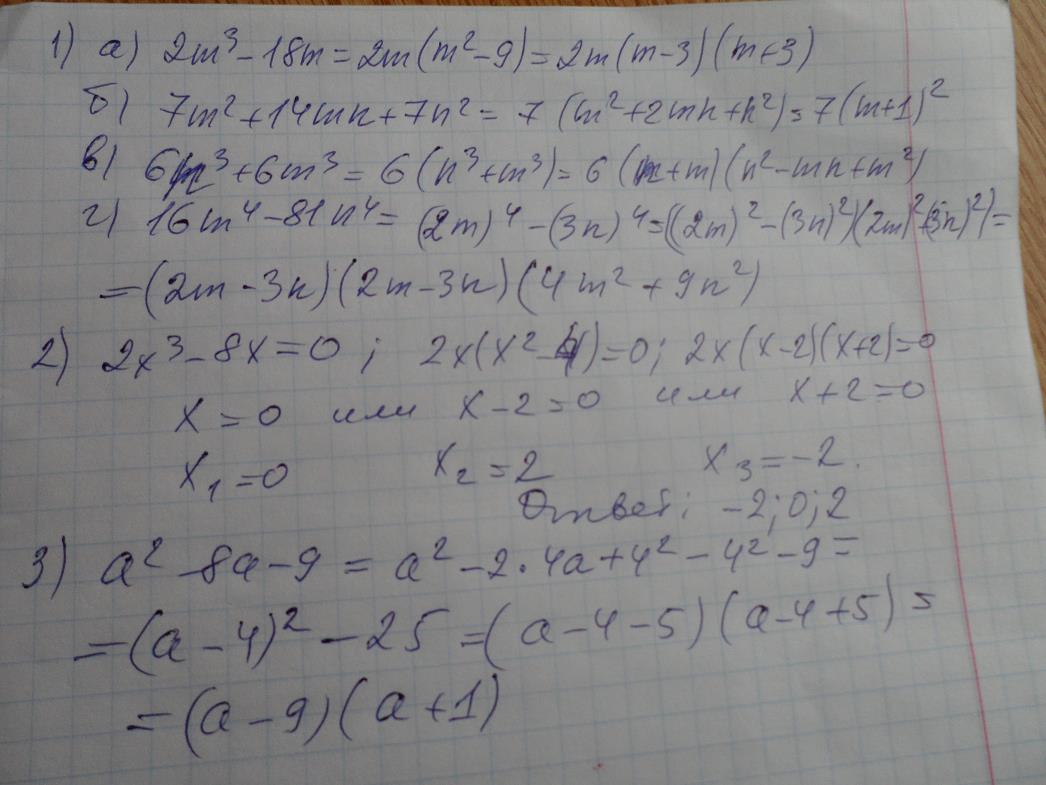 1) а) 2m³ - 18m = 2m(m² - 9) = 2m(m-3)(m+3)
б) 7m² + 14mn + 7n² = 7(m² + 2mn + n²) = 7(m+1)²
в) 6n³ + 6m³ = 6(n³ + m³) = 6(n+m)(n² - mn + m²)
г) 16m⁴ - 81n⁴ = (2m)⁴ - (3n)⁴ = ((2m)² - (3n)²)(2m)² + (3n)²) =
= (2m - 3n)(2m - 3n)(4m² + 9n²)
2) 2x³ - 8x = 0; 2x(x² - 4) = 0; 2x(x-2)(x+2) = 0
x = 0 или x - 2 = 0 или x + 2 = 0
x₁ = 0 x₂ = 2 x₃ = -2.
Ответ: -2; 0; 2
3) a² - 8a - 9 = a² - 2·4a + 4² - 4² - 9 =
= (a - 4)² - 25 = (a - 4 - 5)(a - 4 + 5) =
= (a - 9)(a + 1)